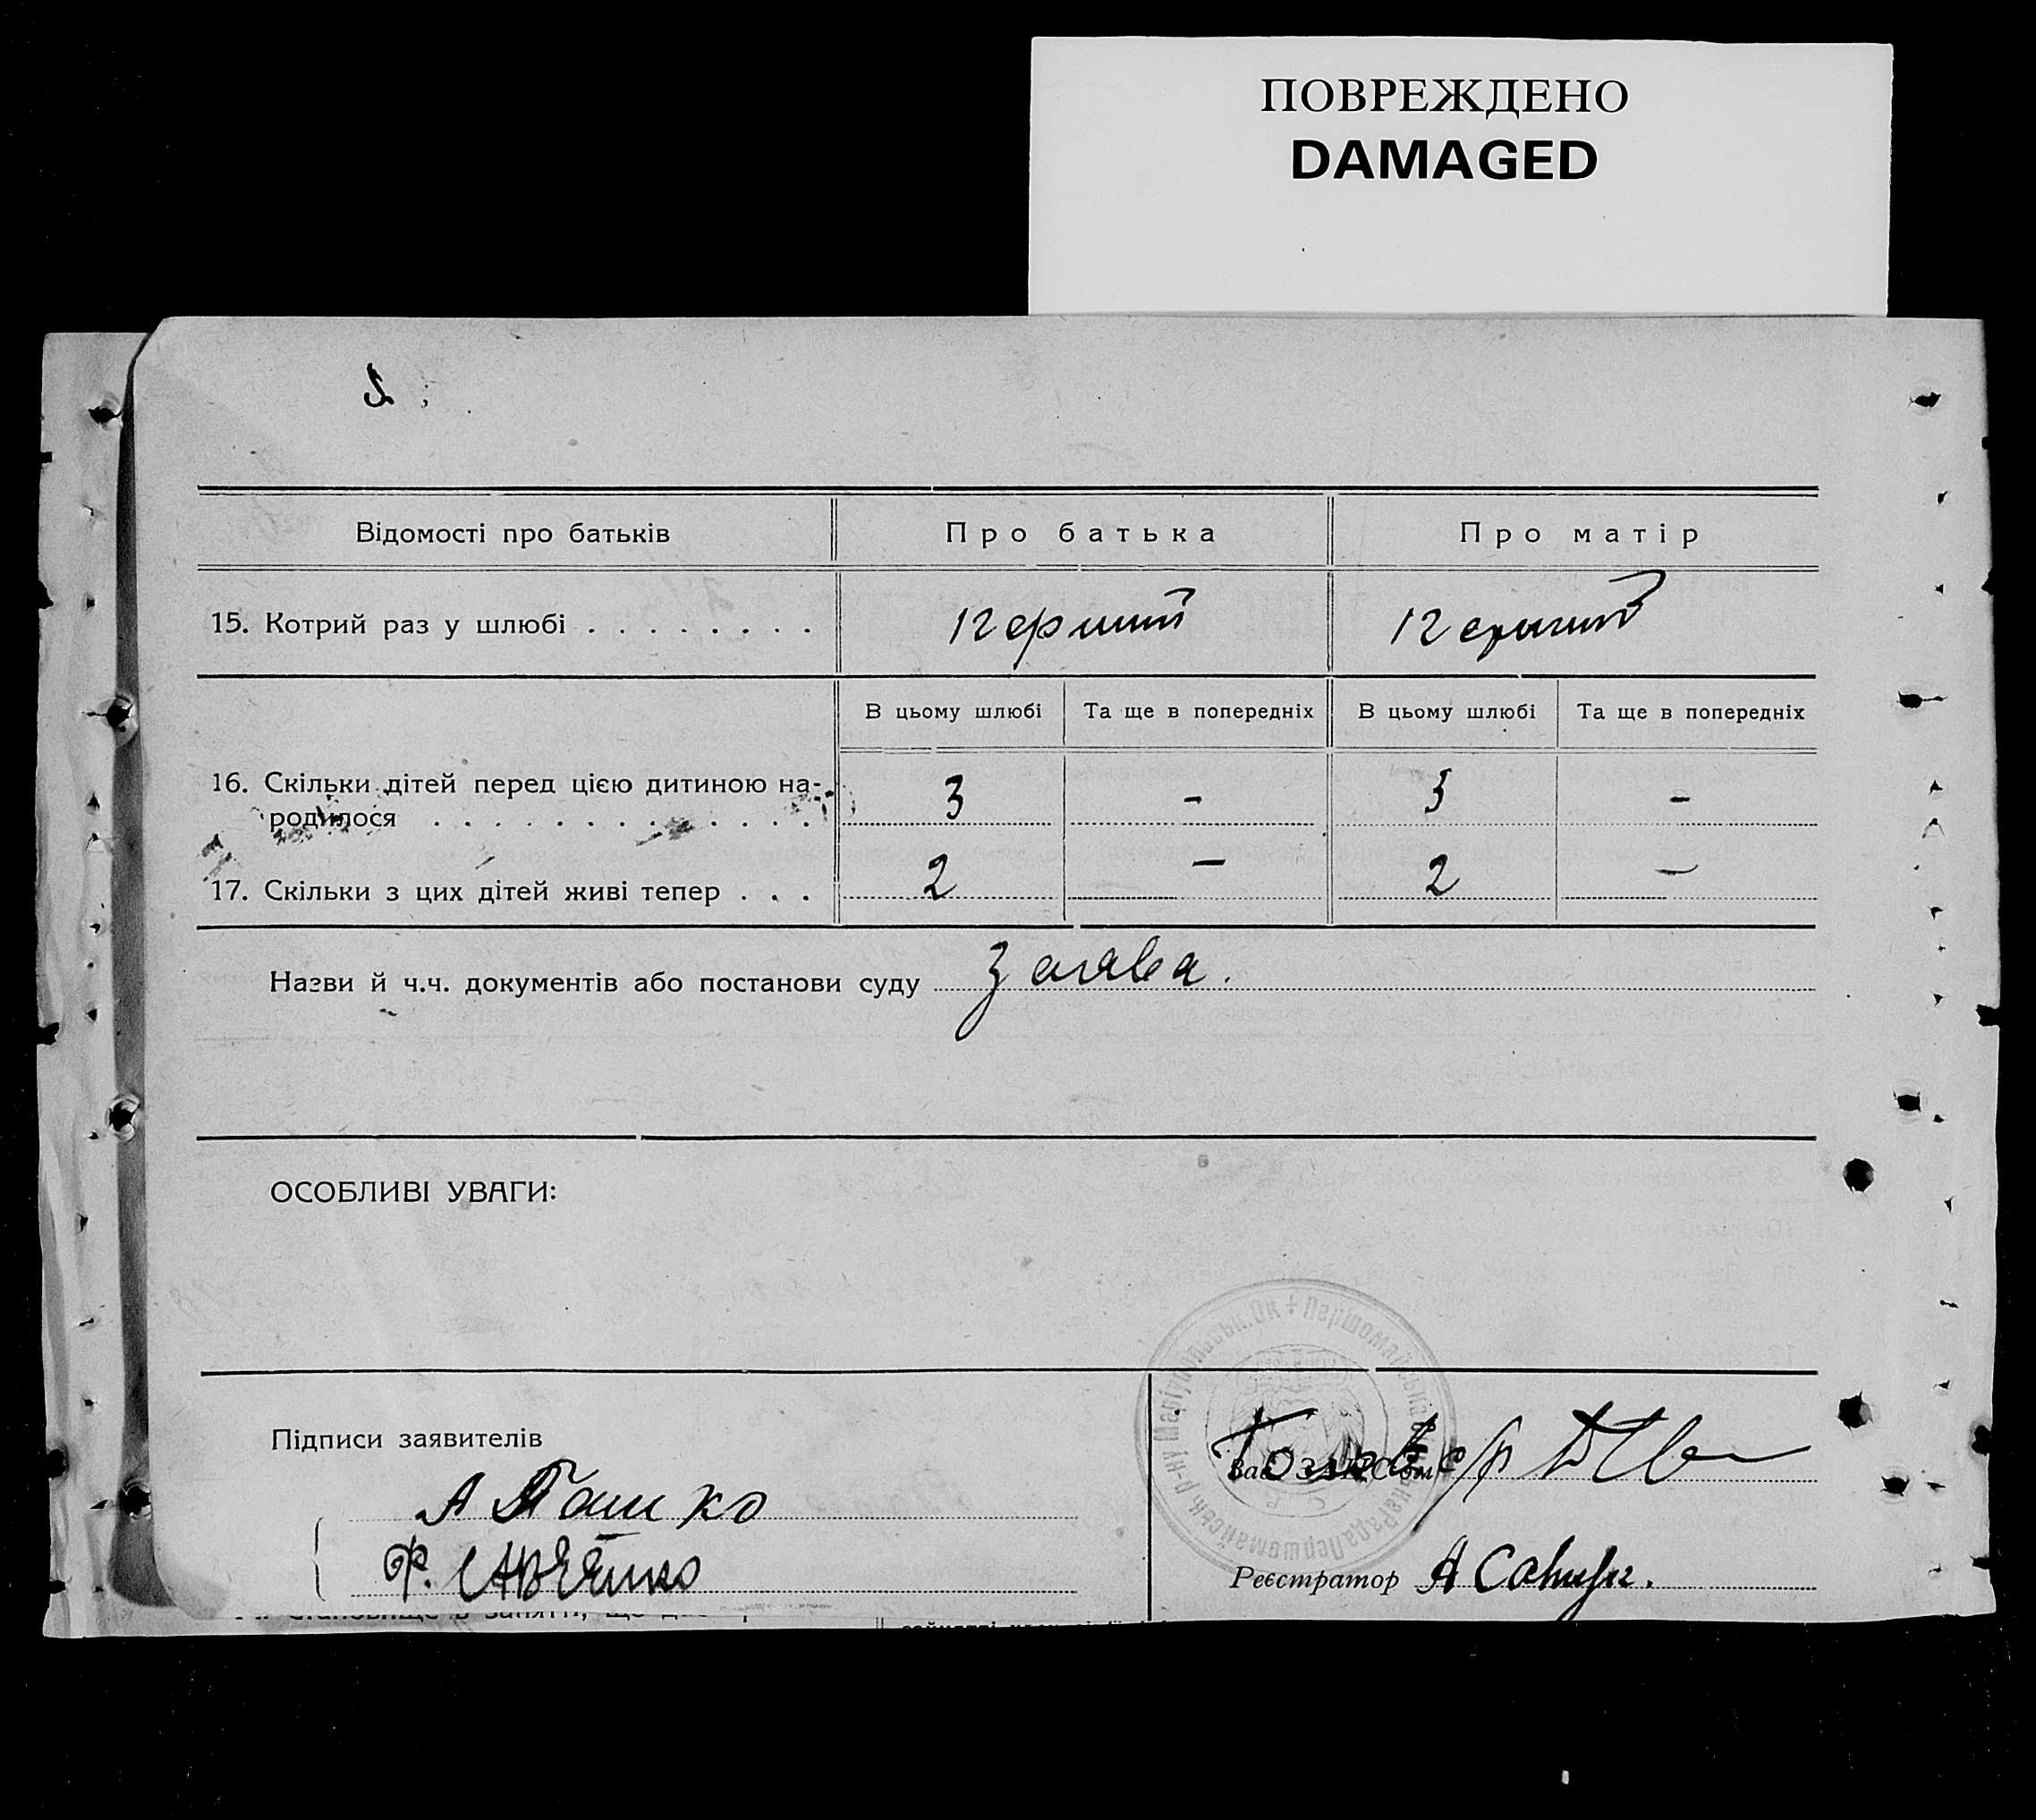 ПОВРЕЖДЕНО
DAMAGED
Відомості про батьків
Про батька
Про матір
15. Котрий раз у шлюбі . . . . . . . .
Перший
Перший
В цьому шлюбі
Та ще в попередніх
В цьому шлюбі
Та ще в попередніх
16. Скільки дітей перед цією дитиною на-
родилося . . . . . . . . . . . . .
3
-
3
-
17. Скільки з цих дітей живі тепер . . .
2
—
2
—
Назви й ч.ч. документів або постанови суду Заява.
ОСОБЛИВІ УВАГИ:
Підписи заявителів
А Пашко
Ф.
Голов с/р
Зав. ЗАГРС'ом
Реєстратор А
Першомайська Рада Першомайськ. р-ну Маріупільськ. Ок